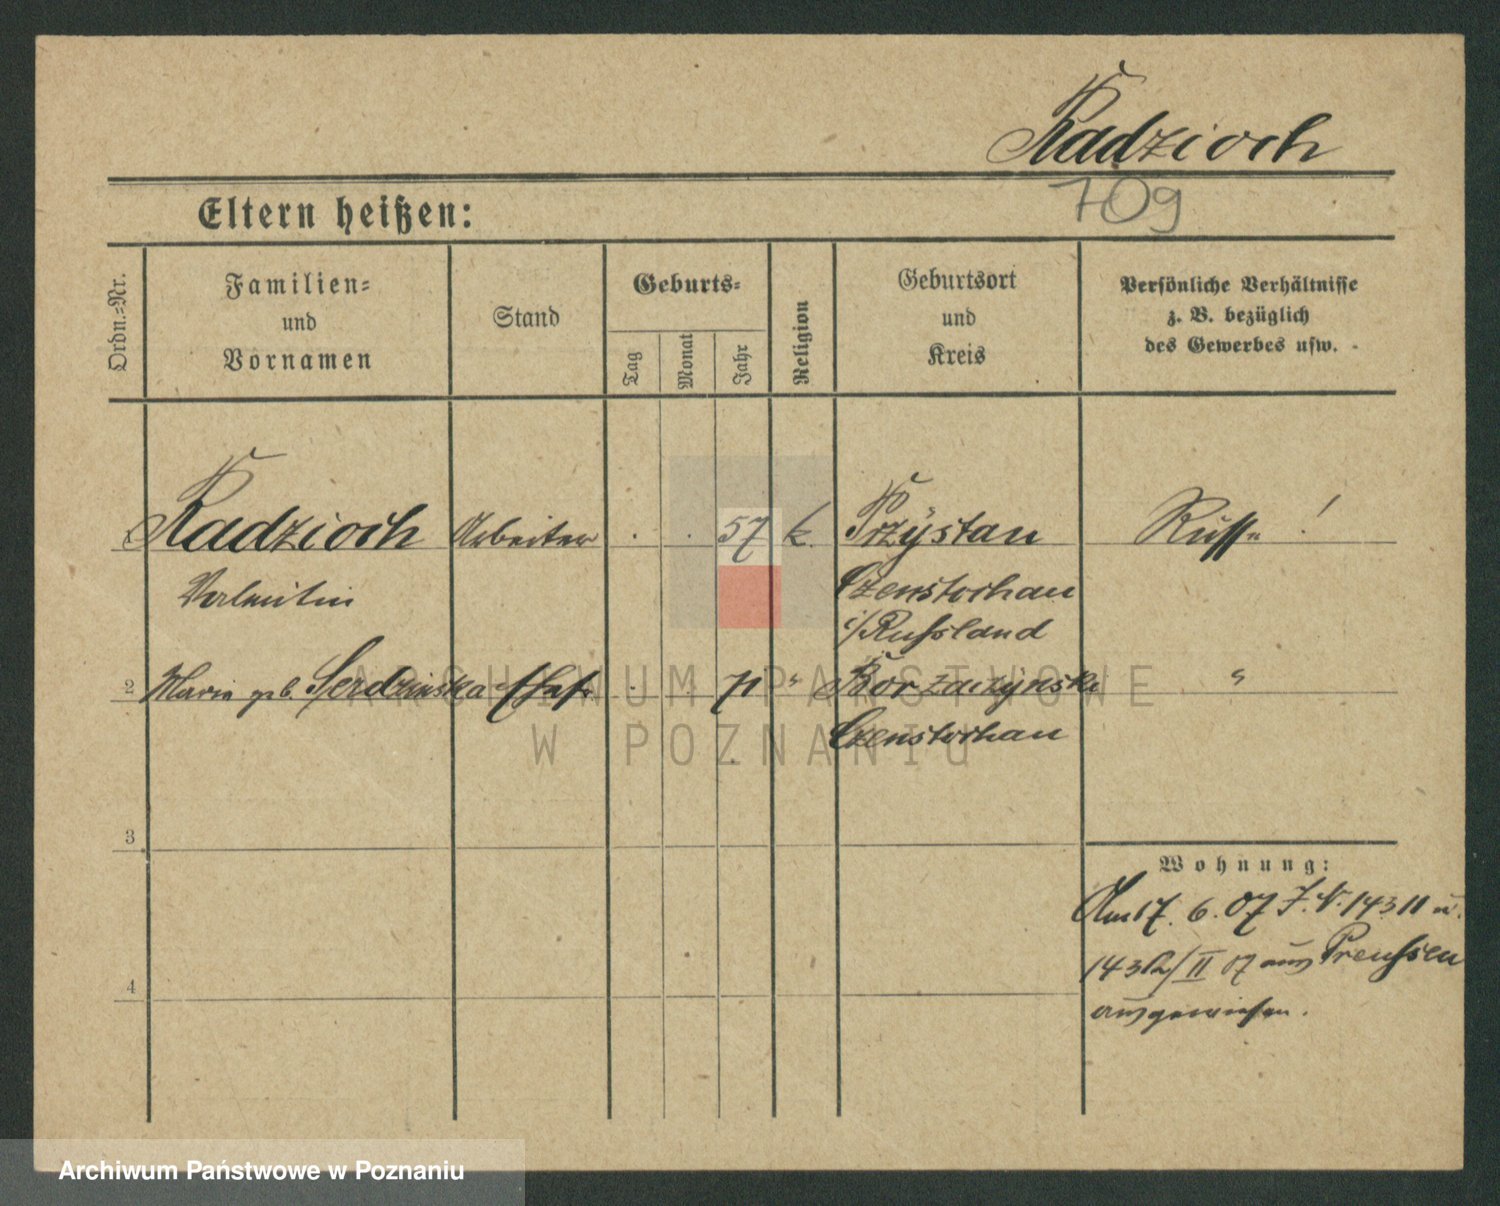 Radzioch
709
Eltern heißen:
Ordn.-Nr.
Familien-
und
Vornamen
Stand
Geburts-
Tag
Monat
Jahr
Religion
Geburtsort
und
Kreis
Persönliche Verhältnisse
z. B. bezüglich
des Gewerbes usw.
1 Radzioch Arbeiter . . 57 k. Przystan Russe !
Valentin Czenstochau
i/Russland
2 Maria geb. Serdzinska Ehefr. . . 71 " "
Czenstochau
ARCHIWUM PAŃSTWOWE
W POZNANIU
3
Wohnung:
Am 17. 6. 07 J. N. 14311 u.
14312/II 07 aus Preussen
4
ausgewiesen.
Archiwum Państwowe w Poznaniu